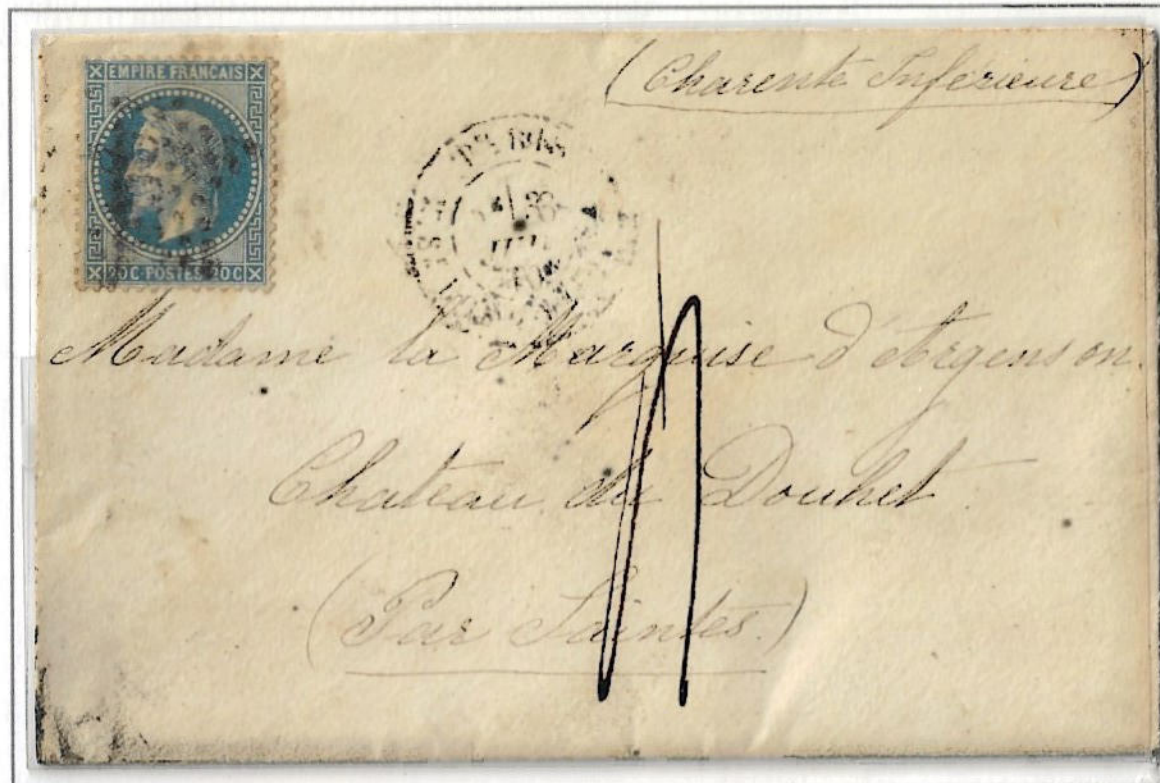 EMPIRE FRANCAIS
20 C POSTES 20 C
(Charente Inférieure)
Madame la Marquise d'Argenson.
Chateau du Douhet
(Par Saintes.)